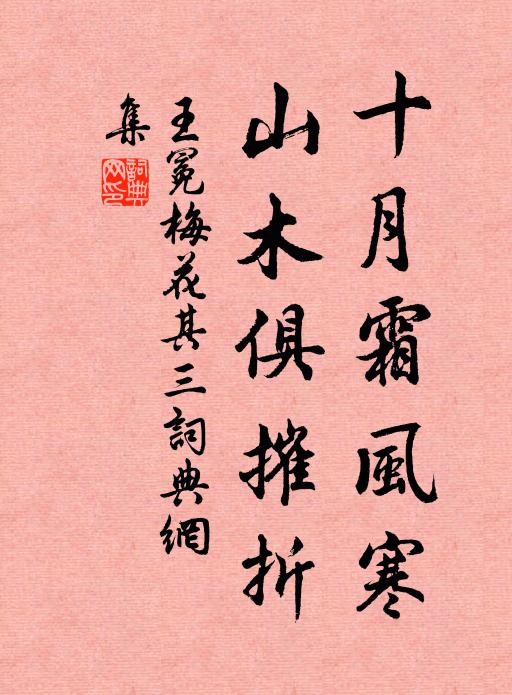 十月霜風寒
山木俱摧折
王冕梅花其三詞典網
集
詞典
网印